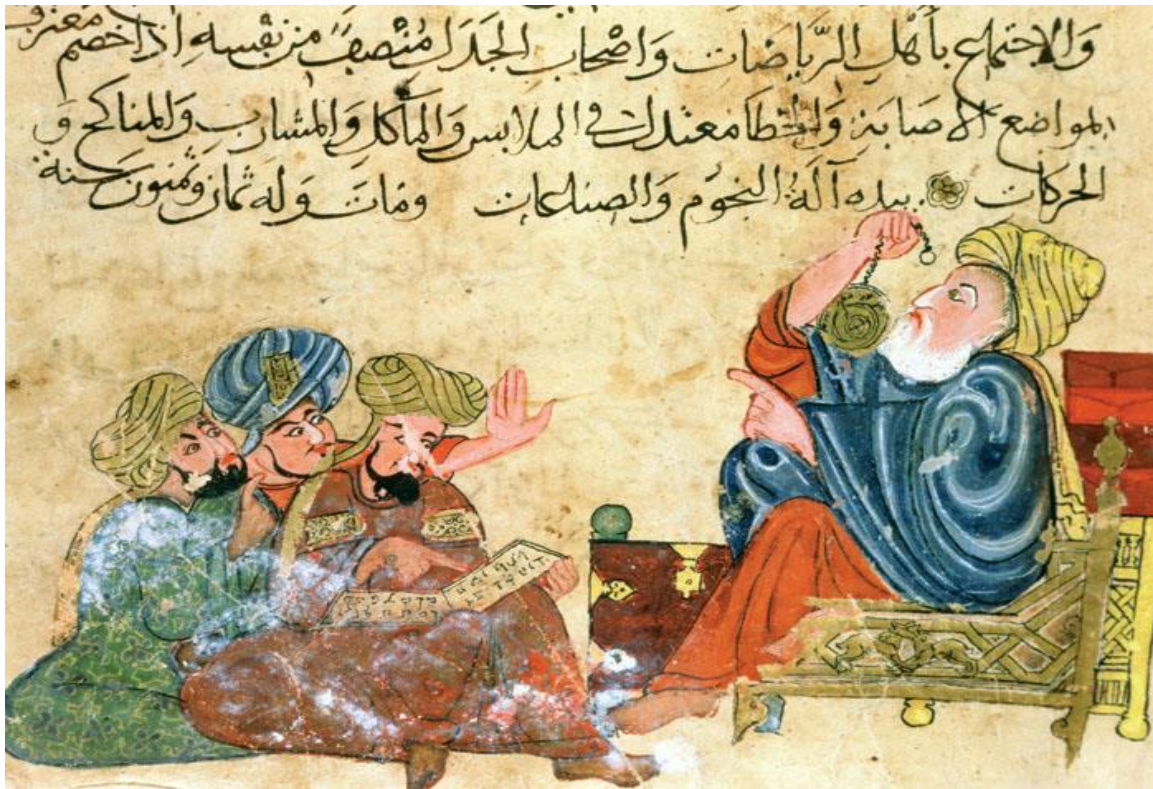 والاجتماع بأهل الرياضات واصحاب الجدل منتصف من نفسه اذا خصم معترف
بمواضع الاصابة والخطا معتدل في الملابس والمآكل والمشارب والمناكح و
الحركات بيده آلة النجوم والصناعات ومات وله ثمان وثمنون سنة